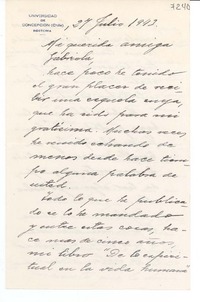 7240
UNIVERSIDAD
DE
CONCEPCIÓN (Chile)
RECTORIA
27 Julio 1943.
Mi querida amiga
Gabriela
hace poco he tenido
el gran placer de reci
bir una esquela suya
que ha sido para mi
gratísima. Muchas veces
he venido echando de
menos desde hace tiem-
po alguna palabra de
usted.
Todo lo que he publica-
do se lo he mandado
y entre estas cosas, ha-
ce mas de cinco años,
mi libro "De lo espiri-
tual en la vida humana"